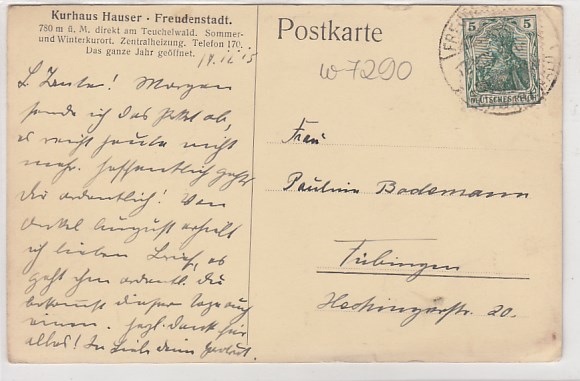 Kurhaus Hauser · Freudenstadt.
780 m ü. M. direkt am Teuchelwald. Sommer-
und Winterkurort. Zentralheizung. Telefon 170.
Das ganze Jahr geöffnet.
L. Tante! Morgen
sende ich das Paket ab,
es reicht heute nicht
mehr. Hoffentlich geht's
Dir ordentlich! Von
Onkel August erhielt
ich lieben Brief, es
geht ihm ordentl. Du
bekommst dieser Tage auch
einen. Herzl. Dank für
alles! In Liebe Dein
Postkarte
w 7290
5
5
DEUTSCHES REICH
Frau
Pauline Bodemann
Tübingen
Hechingerstr. 20.